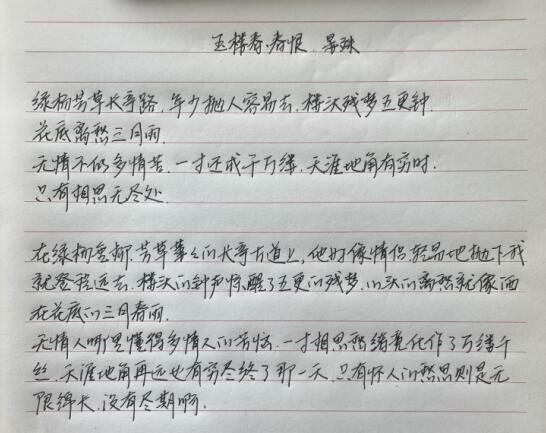 玉楼春·春恨 晏殊
绿杨芳草长亭路,年少抛人容易去.楼头残梦五更钟
花底离愁三月雨.
无情不似多情苦.一寸还成千万缕.天涯地角有穷时.
只有相思无尽处.
在绿杨垂柳.芳草萋萋的长亭古道上,他好像情侣.轻易地抛下我
就登程远去.楼头的钟声惊醒了五更的残梦.心头的离愁就像洒
在花底的三月春雨.
无情人哪里懂得多情人的苦恼.一寸相思愁绪竟化作了万缕千
丝.天涯地角再远也有穷尽终了那一天.只有怀人的愁思则是无
限绵长.没有尽期啊.